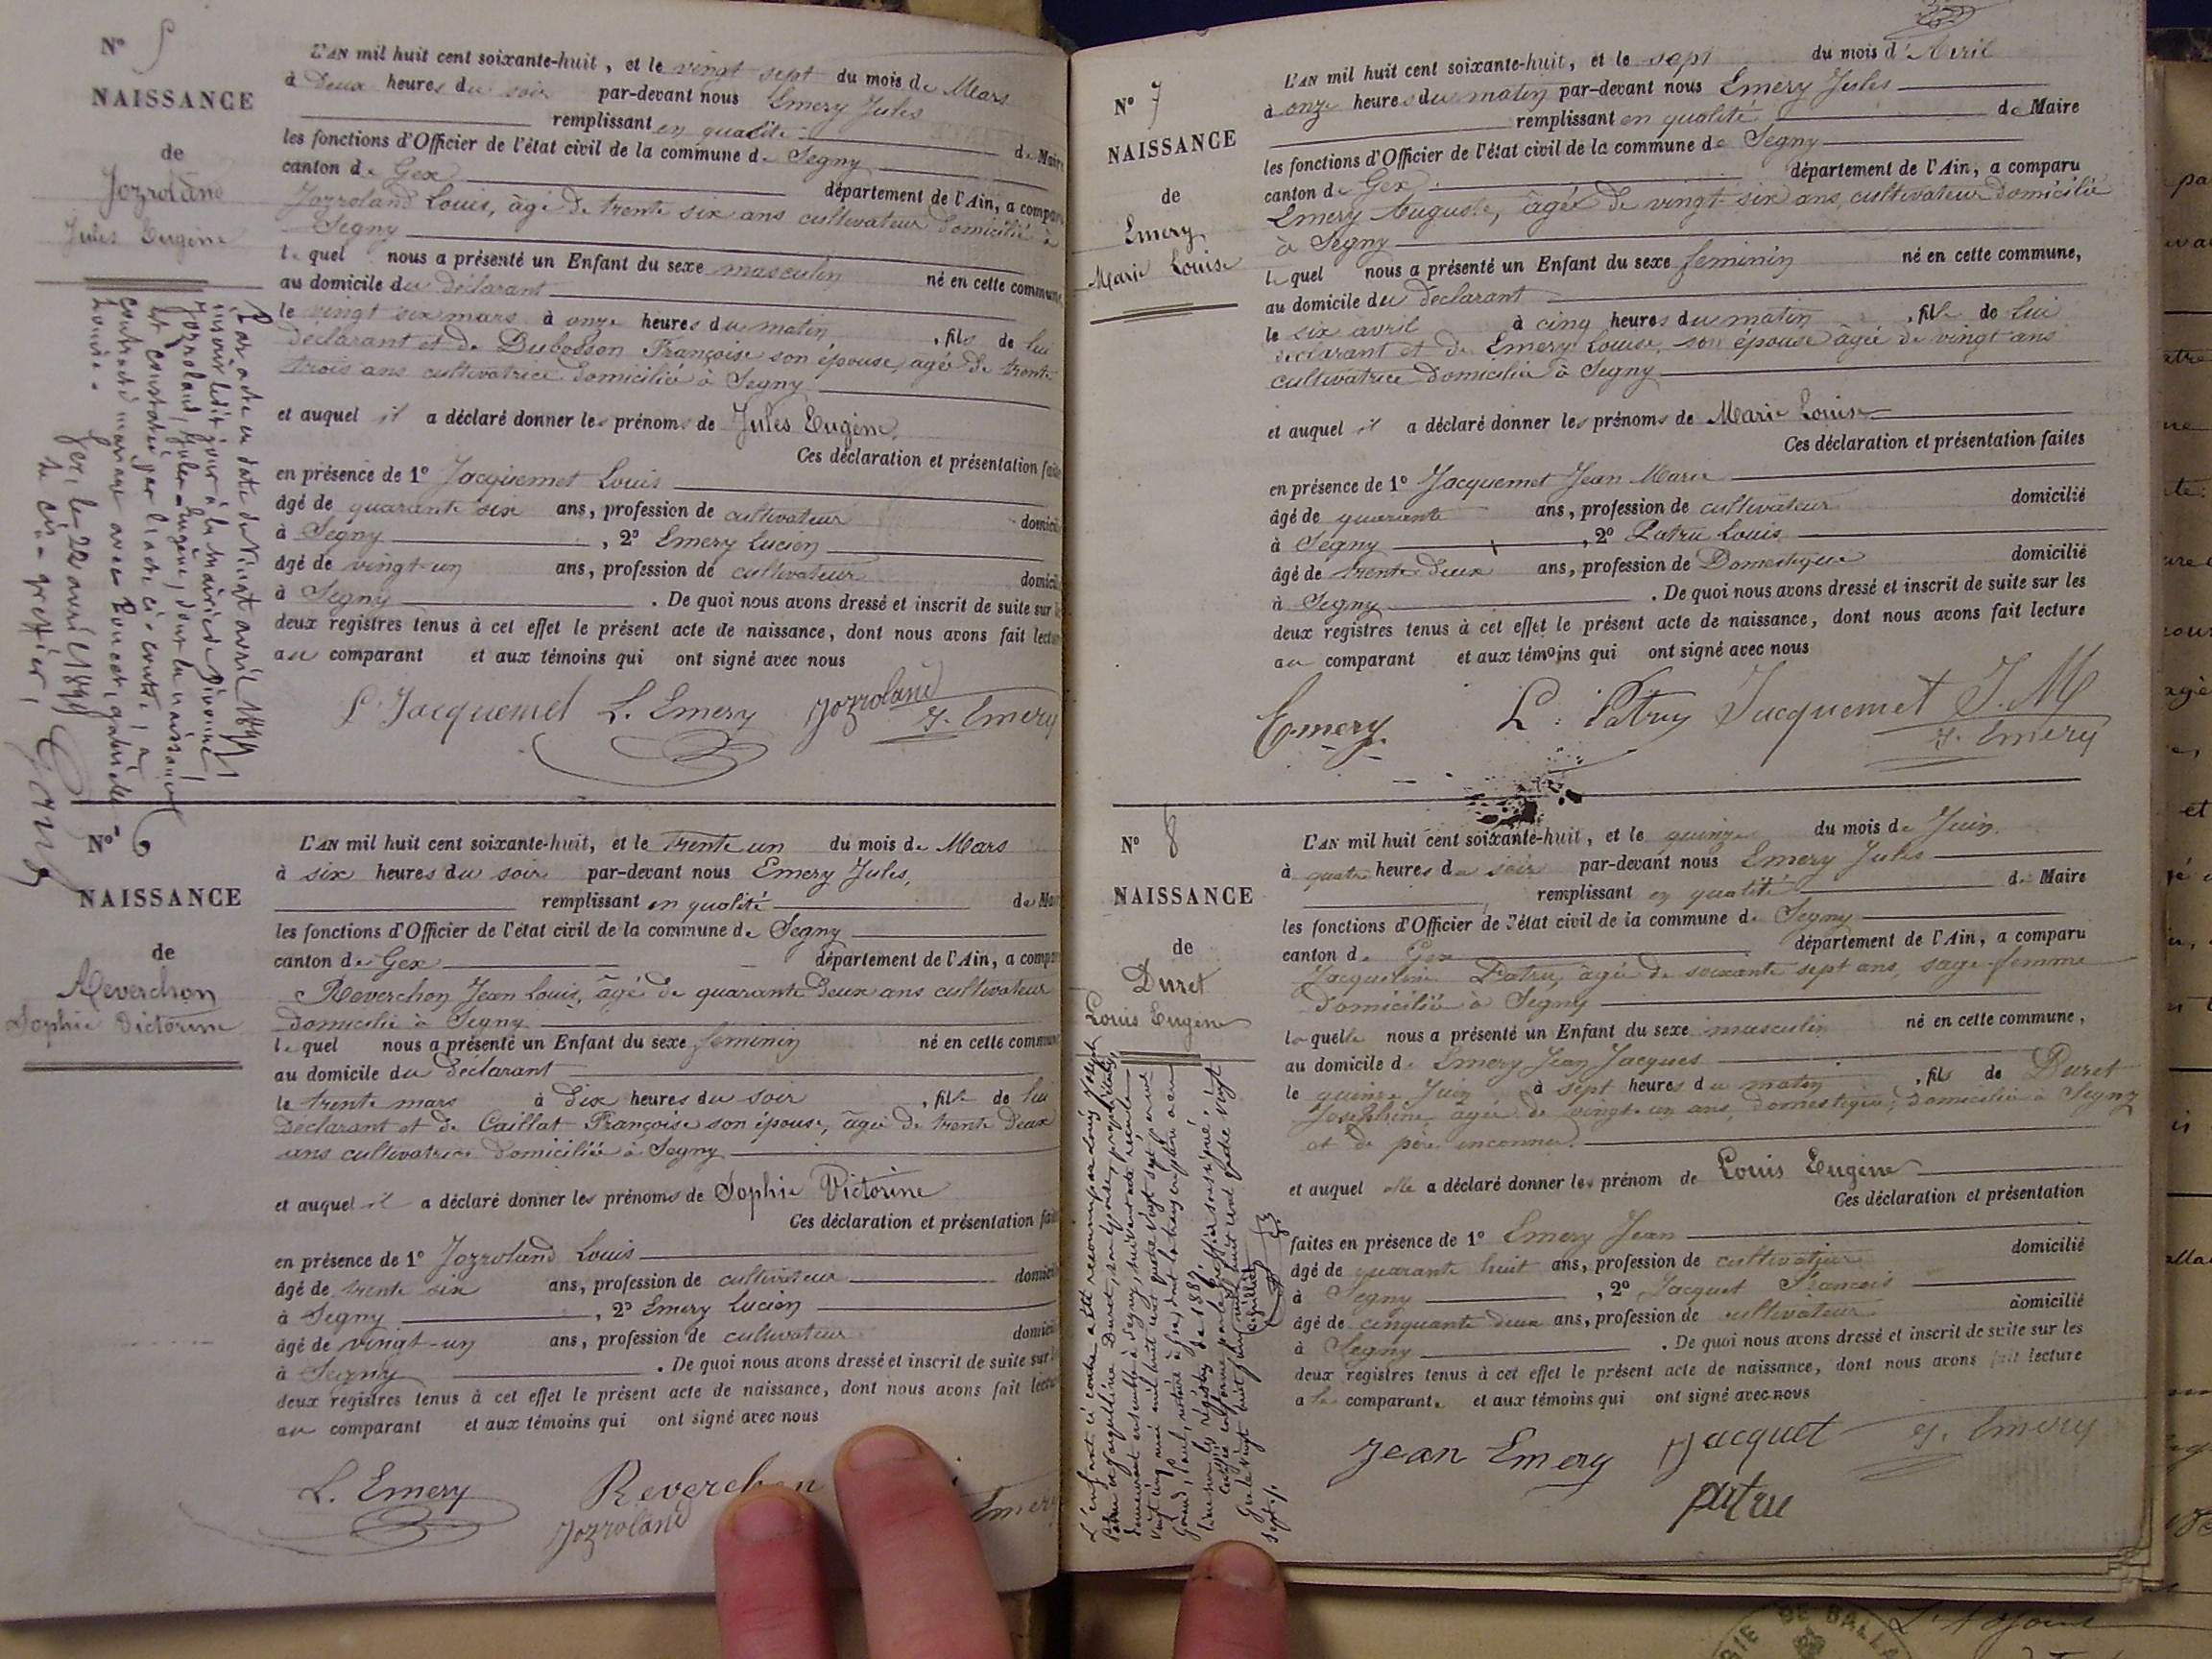 N° 5
NAISSANCE
de
Jozzoland
Jules Eugène
L'AN mil huit cent soixante-huit, et le vingt sept du mois de Mars
à Deux heures du soir par-devant nous Emery Jules
remplissant en qualité de Maire
les fonctions d'Officier de l'état civil de la commune de Segny
canton de Gex département de l'Ain, a compar
Jozzoland Louis, âgé de trente six ans cultivateur domicilié à
Segny
le quel nous a présenté un Enfant du sexe masculin né en cette commune
au domicile du déclarant
le vingt six mars à onze heures du matin, fils de lui
déclarant et de Dubosson Françoise son épouse, agée de trente
trois ans cultivatrice domiciliée à Segny
et auquel il a déclaré donner les prénoms de Jules Eugène
Ces déclaration et présentation faites
en présence de 1° Jacquemet Louis
âgé de quarante six ans, profession de cultivateur domicilié
à Segny, 2° Emery Lucien
âgé de vingt-un ans, profession de cultivateur domicilié
à Segny. De quoi nous avons dressé et inscrit de suite sur les
deux registres tenus à cet effet le présent acte de naissance, dont nous avons fait lecture
au comparant et aux témoins qui ont signé avec nous
L. Jacquemet L. Emery Jozzoland
J. Emery
Par acte en date du Vingt avril 1891
inscrit ledit jour à la mairie de Divonne,
Jozzoland, Jules Eugène, dont la naissance
est constatée par l'acte ci-contre, a
contracté mariage avec Poncet, gabrielle
Louise.
Gex, le 22 avril 1891
Le greffier,
N° 6
NAISSANCE
de
Reverchon
Sophie Victorine
L'AN mil huit cent soixante-huit, et le trente un du mois de Mars
à six heures du soir par-devant nous Emery Jules,
remplissant en qualité de Mai
les fonctions d'Officier de l'état civil de la commune de Segny
canton de Gex département de l'Ain, a compar
Reverchon Jean Louis, âgé de quarante deux ans cultivateur
domicilié à Segny
le quel nous a présenté un Enfant du sexe feminin né en cette commune
au domicile du declarant
le trente mars à dix heures du soir, fille de lui
declarant et de Caillat Françoise son épouse, âgée de trente deux
ans cultivatrice domiciliée à Segny
et auquel il a déclaré donner les prénoms de Sophie Victorine
Ces déclaration et présentation faites
en présence de 1° Jozzoland Louis
âgé de trente six ans, profession de cultivateur domicilié
à Segny, 2° Emery Lucien
âgé de vingt-un ans, profession de cultivateur domicilié
à Segny. De quoi nous avons dressé et inscrit de suite sur
deux registres tenus à cet effet le présent acte de naissance, dont nous avons fait lecture
au comparant et aux témoins qui ont signé avec nous
L. Emery Reverchon
Jozzoland Emery
N° 7
NAISSANCE
de
Emery
Marie Louise
L'AN mil huit cent soixante-huit, et le sept du mois d'Avril
à onze heures du matin par-devant nous Emery Jules
remplissant en qualité de Maire
les fonctions d'Officier de l'état civil de la commune de Segny
canton de Gex département de l'Ain, a comparu
Emery Auguste, âgé de vingt-six ans, cultivateur domicilié
à Segny
le quel nous a présenté un Enfant du sexe feminin né en cette commune,
au domicile du declarant
le six avril à cinq heures du matin, fille de lui
declarant et de Emery Louise, son épouse âgée de vingt ans
cultivatrice domiciliée à Segny
et auquel il a déclaré donner les prénoms de Marie Louise
Ces déclaration et présentation faites
en présence de 1° Jacquemet Jean Marie
âgé de quarante ans, profession de cultivateur domicilié
à Segny, 2° Patru Louis
âgé de trente deux ans, profession de Domestique domicilié
à Segny. De quoi nous avons dressé et inscrit de suite sur les
deux registres tenus à cet effet le présent acte de naissance, dont nous avons fait lecture
au comparant et aux témoins qui ont signé avec nous
Emery L. Patru Jacquemet J. M
J. Emery
N° 8
NAISSANCE
de
Duret
Louis Eugène
L'AN mil huit cent soixante-huit, et le quinze du mois de Juin
à quatre heures du soir par-devant nous Emery Jules
remplissant en qualité de Maire
les fonctions d'Officier de l'état civil de la commune de Segny
canton de Gex département de l'Ain, a comparu
Jacqueline Patru, âgée de soixante sept ans, sage-femme
domiciliée à Segny
laquelle nous a présenté un Enfant du sexe masculin né en cette commune,
au domicile d Emery Jean Jacques
le quinze Juin à sept heures du matin, fils de Duret
Josephine, âgée de vingt-un ans, domestique, domiciliée à Segny
et de père inconnu.
et auquel elle a déclaré donner les prénom de Louis Eugène
Ces déclaration et présentation
faites en présence de 1° Emery Jean
âgé de quarante huit ans, profession de cultivateur domicilié
à Segny, 2° Jacquet Francois
âgé de cinquante deux ans, profession de cultivateur domicilié
à Segny. De quoi nous avons dressé et inscrit de suite sur les
deux registres tenus à cet effet le présent acte de naissance, dont nous avons fait lecture
a la comparante et aux témoins qui ont signé avec nous
Jean Emery Jacquet J. Emery
patru
L'enfant ci contre a été reconnu par Louis Joseph
Patru et Joséphine Duret, son épouse, propriétaires,
demeurant ensemble à Segny, suivant acte reçu le
Vingt cinq mai mil huit cent quatre vingt sept par Me
notaire à Gex, dont la transcription a eu
lieu sur les registres de 1887.